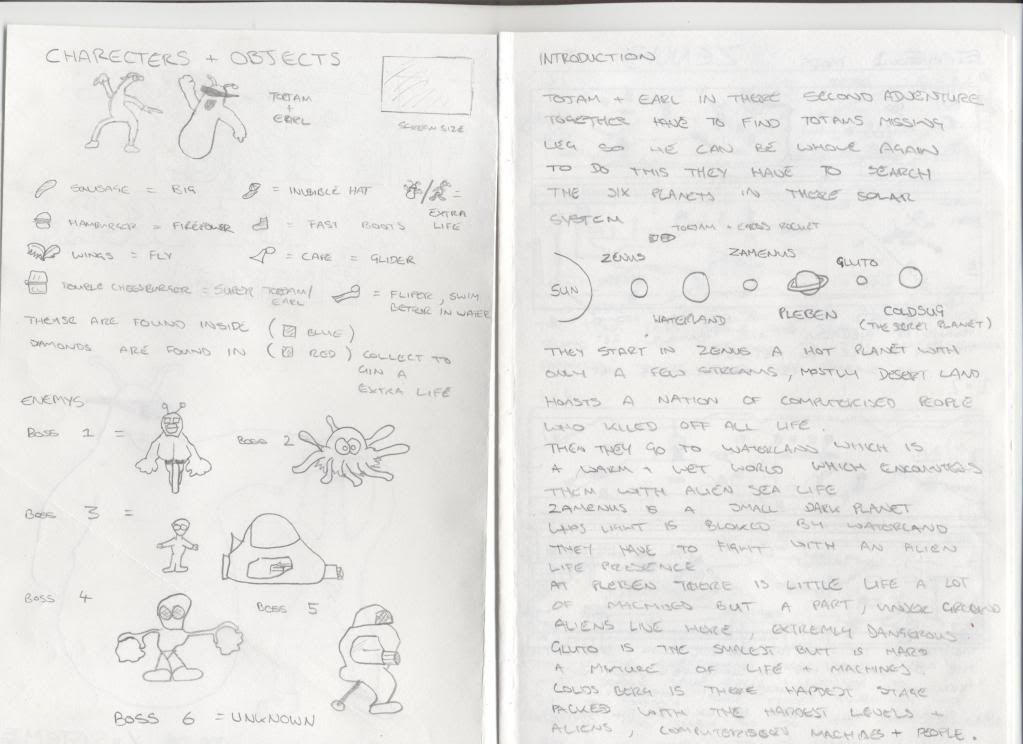 CHARECTERS + OBJECTS
TOEJAM
+
EARL
SCREEN SIZE
SAUSAGE = BIG
= INVISIBLE HAT
=
EXTRA
LIFE
HAMBURGER = FIREPOWER
= FAST BOOTS
WINGS = FLY
= CAPE = GLIDER
DOUBLE CHEESBURGER = SUPER TOEJAM/
EARL
= FLIPER, SWIM
BETTER IN WATER
THEASE ARE FOUND INSIDE ( BLUE)
DAMONDS ARE FOUND IN ( RED) COLLECT TO
GIN A
EXTRA LIFE
ENEMYS
BOSS 1 =
BOSS 2
BOSS 3 =
BOSS 4
BOSS 5
BOSS 6 = UNKNOWN
INTRODUCTION
TOJAM + EARL IN THERE SECOND ADVENTURE
TOGETHER HAVE TO FIND TOTAMS MISSING
LEG SO HE CAN BE WHOLE AGAIN
TO DO THIS THEY HAVE TO SEARCH
THE SIX PLANETS IN THERE SOLAR
SYSTEM
TOEJAM + EARLS ROCKET
ZENUS
ZAMENUS
GLUTO
SUN
WATERLAND
PLEBEN
COLDSUG
(THE SECRET PLANET)
THEY START IN ZENUS A HOT PLANET WITH
ONLY A FEW STREAMS, MOSTLY DESERT LAND
HOASTS A NATION OF COMPUTERISED PEOPLE
WHO KILLED OFF ALL LIFE.
THEN THEY GO TO WATERLAND WHICH IS
A WARM + WET WORLD WHICH ENCOUNTERS
THEM WITH ALIEN SEA LIFE
ZAMENUS IS A SMALL DARK PLANET
WHOS LIGHT IS BLOKED BY WATERLAND
THEY HAVE TO FIGHT WITH AN ALIEN
LIFE PRESENCE.
AT PLEBEN THERE IS LITTLE LIFE A LOT
OF MACHINES BUT A PART, UNDER GROUND
ALIENS LIVE HERE, EXTREMLY DANGEROUS.
GLUTO IS THE SMALEST BUT IS HARD
A MIXTURE OF LIFE + MACHINES.
COLDS BERG IS THERE HARDEST STAGE
PACKED WITH THE HARDEST LEVELS +
ALIENS, COMPUTERISED MACHINES + PEOPLE.